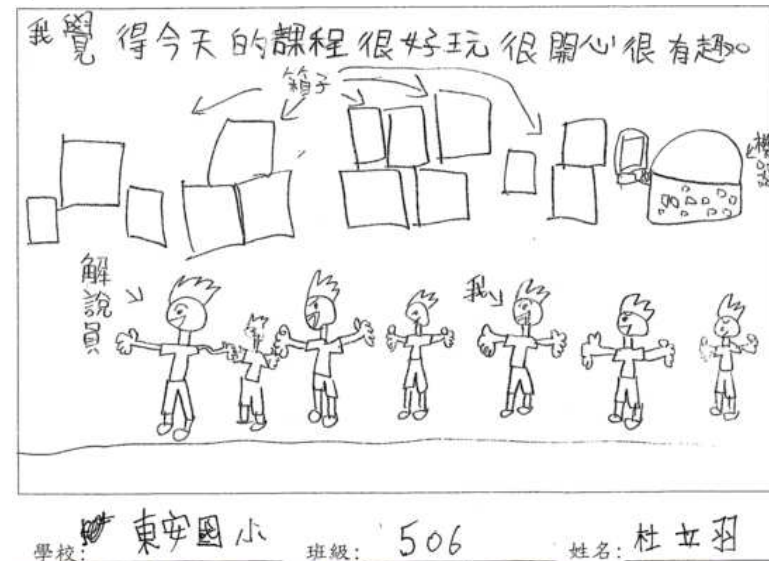 我覺得今天的課程很好玩很開心很有趣。
箱子
機器
解說員
我
學校: 東安國小 班級: 506 姓名: 杜立羽